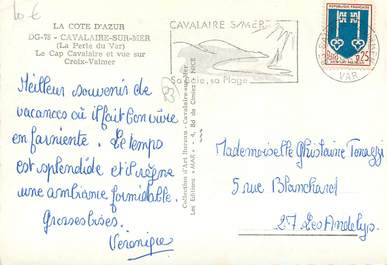 10 €
LA COTE D'AZUR
DG-78 - CAVALAIRE-SUR-MER
(La Perle du Var)
Le Cap Cavalaire et vue sur
Croix-Valmer
Meilleur souvenir de
vacances où il fait bon vivre
en farniente. Le temps
est splendide et il règne
une ambiance formidable.
Grosses bises.
Véronique
Collection d'Art Iteram - Cavalaire-sur-Mer
Les Editions « MAR » 4, Bd de Cimiez - NICE
83
CAVALAIRE S/MER
sa Plage
REPUBLIQUE FRANÇAISE
0,25
VAR
Mademoiselle Ghislaine Terazzi
5 rue Blanchard
27 Les Andelys